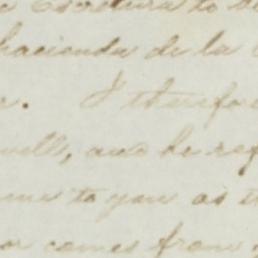 Escritura to
hacienda de la
. I therefor
well, and he ref
me to you as t
or comes from